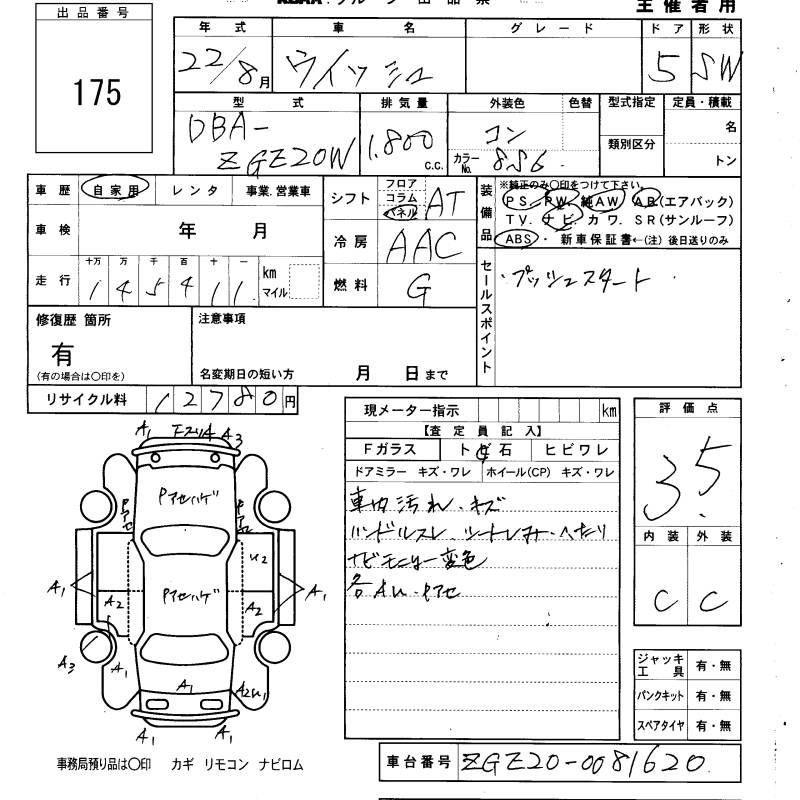 出品番号
175
主催者用
年式 車名 グレード ドア 形状
22/8月 ウイッシュ 5 SW
型式 排気量 外装色 色替 型式指定 定員・積載
DBA-
ZGZ20W 1.800 c.c. コン カラーNo. 8S6 類別区分 名
トン
車歴 自家用 レンタ 事業.営業車
シフト フロア コラム パネル AT
装備品 ※純正のみ○印をつけて下さい。
PS. PW. 純AW AB(エアバック)
TV. ナビ. カワ. SR(サンルーフ)
ABS・ 新車保証書←(注) 後日送りのみ
車検 年 月
冷房 AAC
走行 十万 万 千 百 十 一
1 4 5 4 1 1 km マイル
燃料 G
セールスポイント
・プッシュスタート
修復歴 箇所
有
(有の場合は○印を)
注意事項
名変期日の短い方 月 日まで
リサイクル料 12780円
現メーター指示 km
【査定員記入】
Fガラス トビ石 ヒビワレ
ドアミラー キズ・ワレ ホイール(CP) キズ・ワレ
車内汚れ、キズ
ハンドルスレ、シートレみ・へたり
ナビモニター変色
各AU・Pアセ
評価点
3.5
内装 外装
C C
ジャッキ工具 有・無
パンクキット 有・無
スペアタイヤ 有・無
A1 A3
Pアセハゲ
Pアセ
U2
Pアセハゲ
A1 A2 A2 A1
A3 A1
A1 A2U1
A1 A1
事務局預り品は○印 カギ リモコン ナビロム
車台番号 ZGZ20-0081620